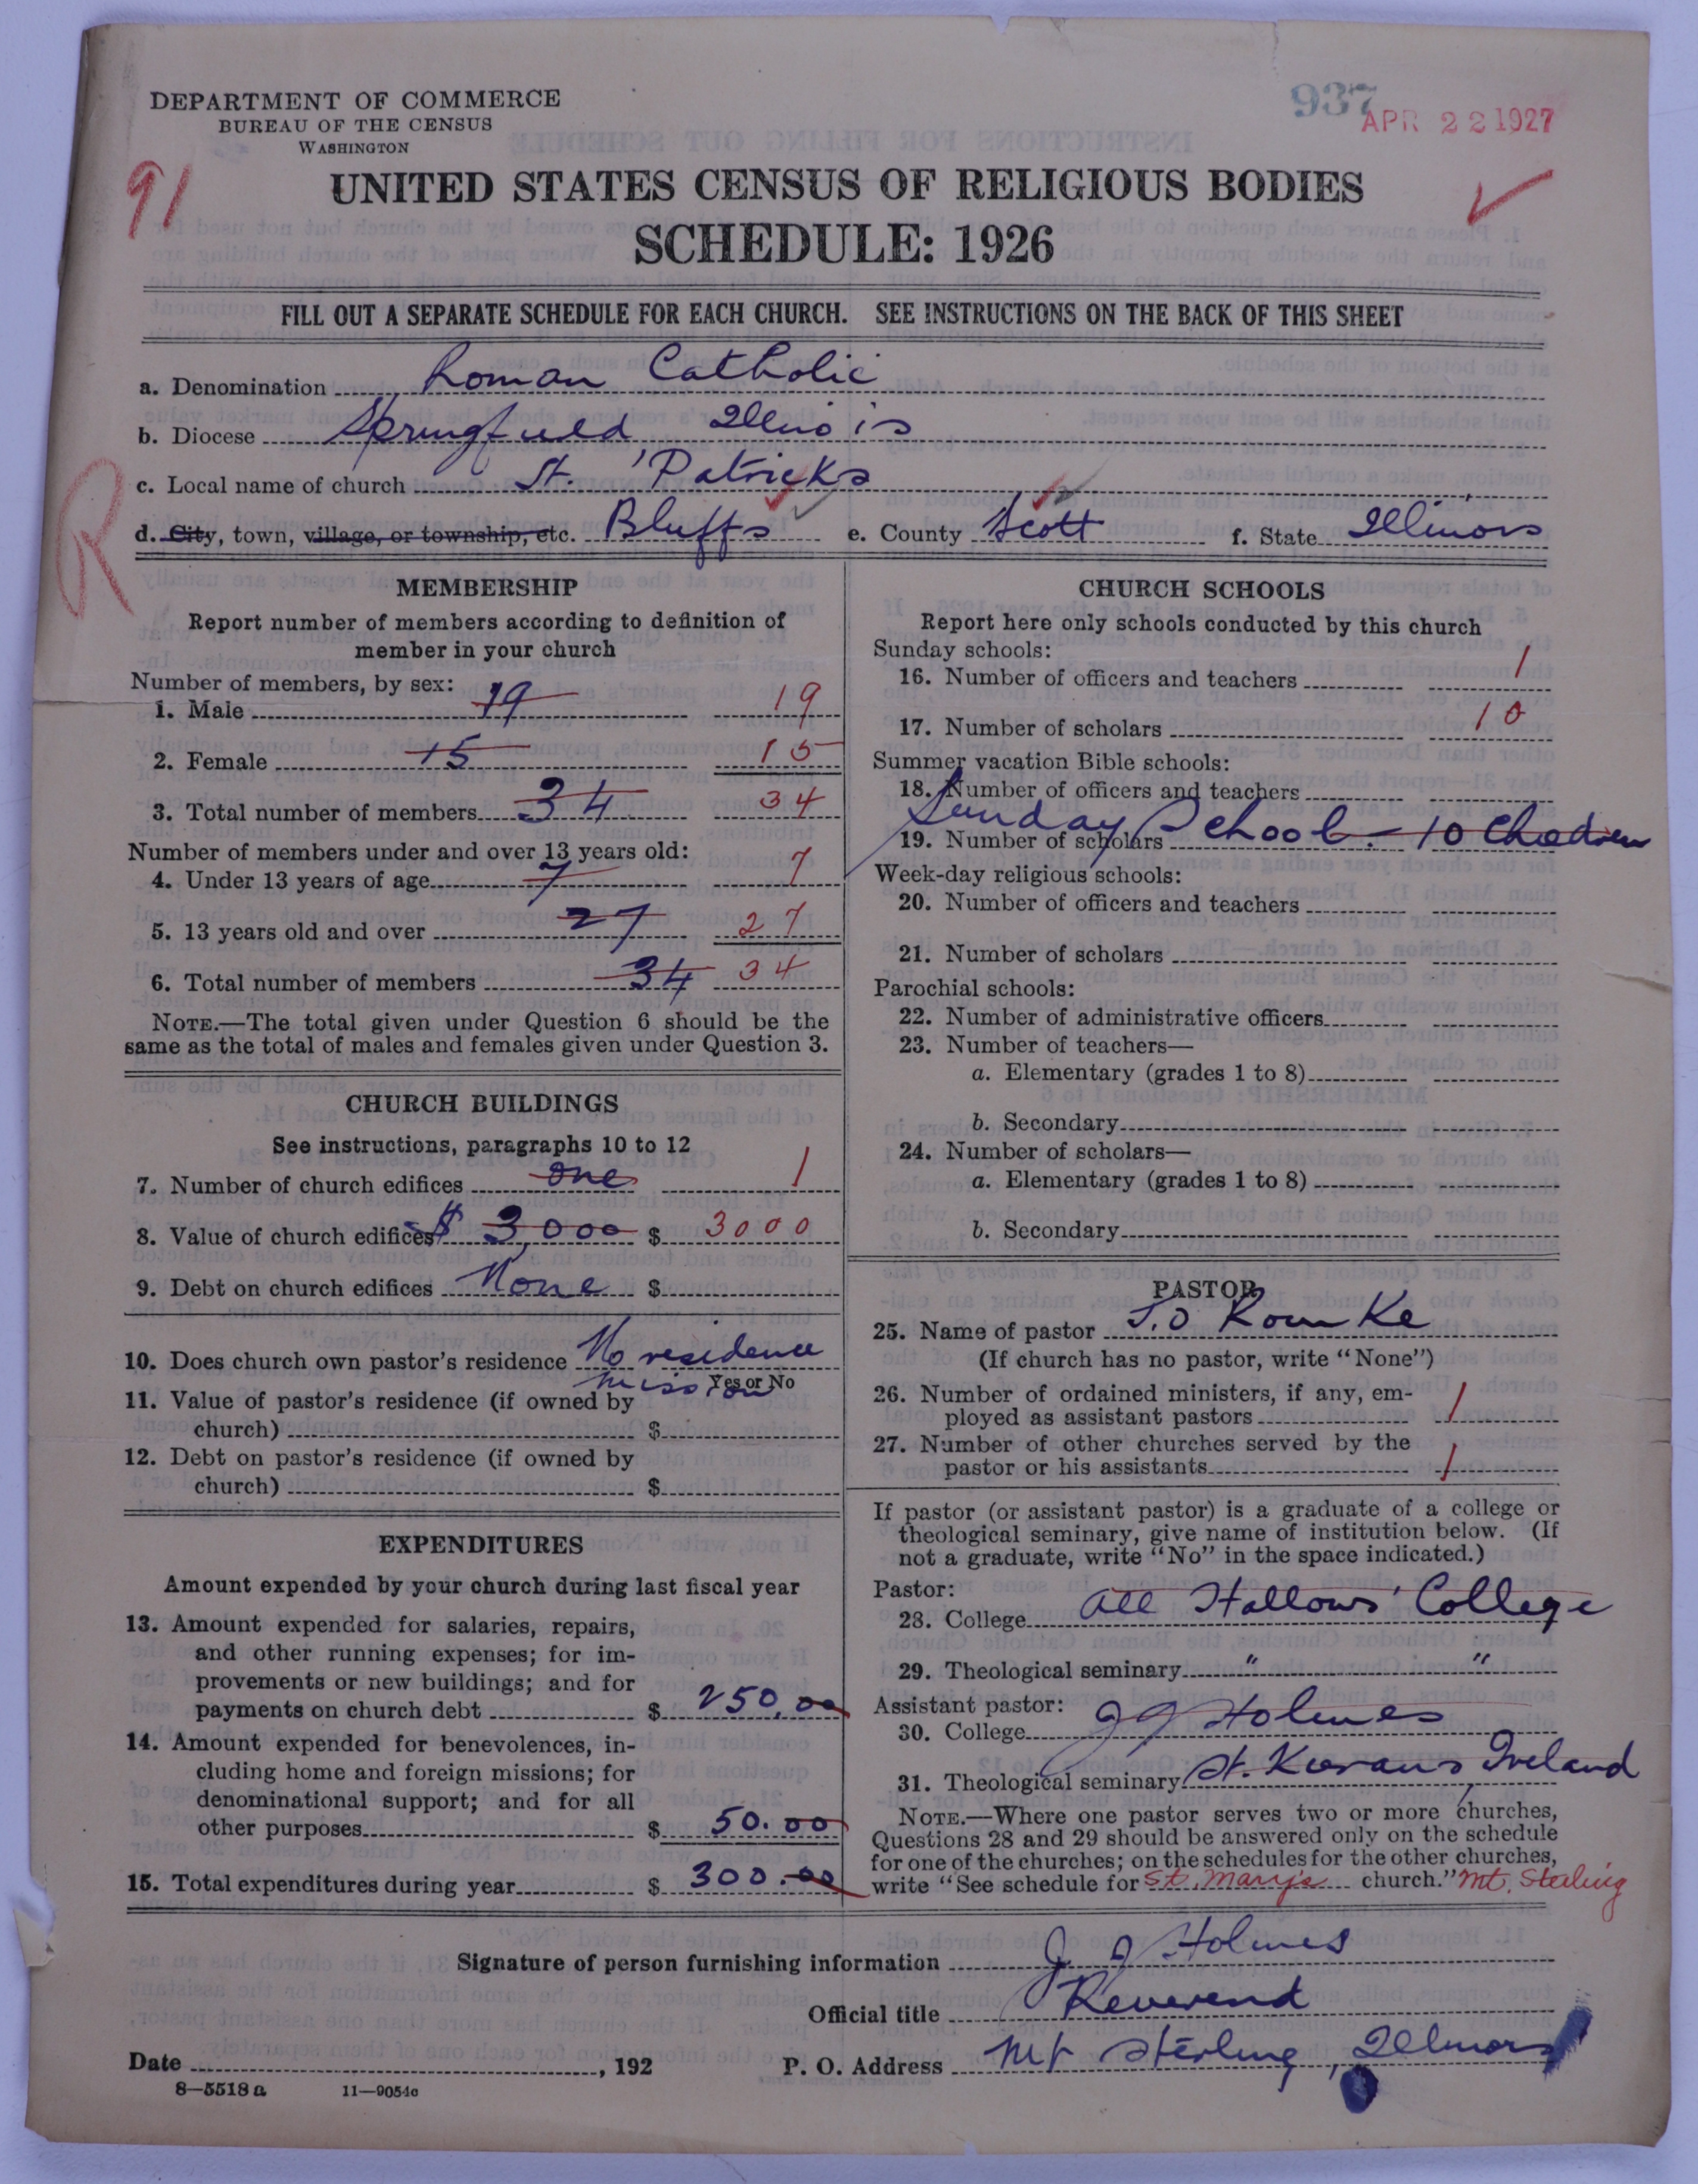 DEPARTMENT OF COMMERCE
BUREAU OF THE CENSUS
WASHINGTON
937
APR 22 1927
91
UNITED STATES CENSUS OF RELIGIOUS BODIES
SCHEDULE: 1926
FILL OUT A SEPARATE SCHEDULE FOR EACH CHURCH. SEE INSTRUCTIONS ON THE BACK OF THIS SHEET
a. Denomination Roman Catholic
b. Diocese Springfield Illinois
c. Local name of church St. Patricks
R
d. City, town, village, or township, etc. Bluffs e. County Scott f. State Illinois
MEMBERSHIP
Report number of members according to definition of
member in your church
Number of members, by sex:
1. Male 19 19
2. Female 15 15
3. Total number of members 34 34
Number of members under and over 13 years old:
4. Under 13 years of age 7 7
5. 13 years old and over 27 27
6. Total number of members 34 34
NOTE.—The total given under Question 6 should be the
same as the total of males and females given under Question 3.
CHURCH BUILDINGS
See instructions, paragraphs 10 to 12
7. Number of church edifices one 1
8. Value of church edifices $ 3,000 $ 3000
9. Debt on church edifices None $
10. Does church own pastor's residence No residence
mission
Yes or No
11. Value of pastor's residence (if owned by
church) $
12. Debt on pastor's residence (if owned by
church) $
EXPENDITURES
Amount expended by your church during last fiscal year
13. Amount expended for salaries, repairs,
and other running expenses; for im-
provements or new buildings; and for
payments on church debt $ 250.00
14. Amount expended for benevolences, in-
cluding home and foreign missions; for
denominational support; and for all
other purposes $ 50.00
15. Total expenditures during year $ 300.00
CHURCH SCHOOLS
Report here only schools conducted by this church
Sunday schools:
16. Number of officers and teachers 1
17. Number of scholars 10
Summer vacation Bible schools:
18. Number of officers and teachers
Sunday School - 10 Children
19. Number of scholars
Week-day religious schools:
20. Number of officers and teachers
21. Number of scholars
Parochial schools:
22. Number of administrative officers
23. Number of teachers—
a. Elementary (grades 1 to 8)
b. Secondary
24. Number of scholars—
a. Elementary (grades 1 to 8)
b. Secondary
PASTOR
25. Name of pastor J.O Rourke
(If church has no pastor, write "None")
26. Number of ordained ministers, if any, em-
ployed as assistant pastors 1
27. Number of other churches served by the
pastor or his assistants 1
If pastor (or assistant pastor) is a graduate of a college or
theological seminary, give name of institution below. (If
not a graduate, write "No" in the space indicated.)
Pastor:
28. College All Hallows' College
29. Theological seminary " "
Assistant pastor:
30. College J J Holmes
31. Theological seminary St. Kierans, Ireland
NOTE.—Where one pastor serves two or more churches,
Questions 28 and 29 should be answered only on the schedule
for one of the churches; on the schedules for the other churches,
write "See schedule for St. Mary's church." Mt. Sterling
Signature of person furnishing information J J Holmes
Official title Reverend
Date , 192 P. O. Address Mt Sterling, Illinois
8—5518 a 11—9054c